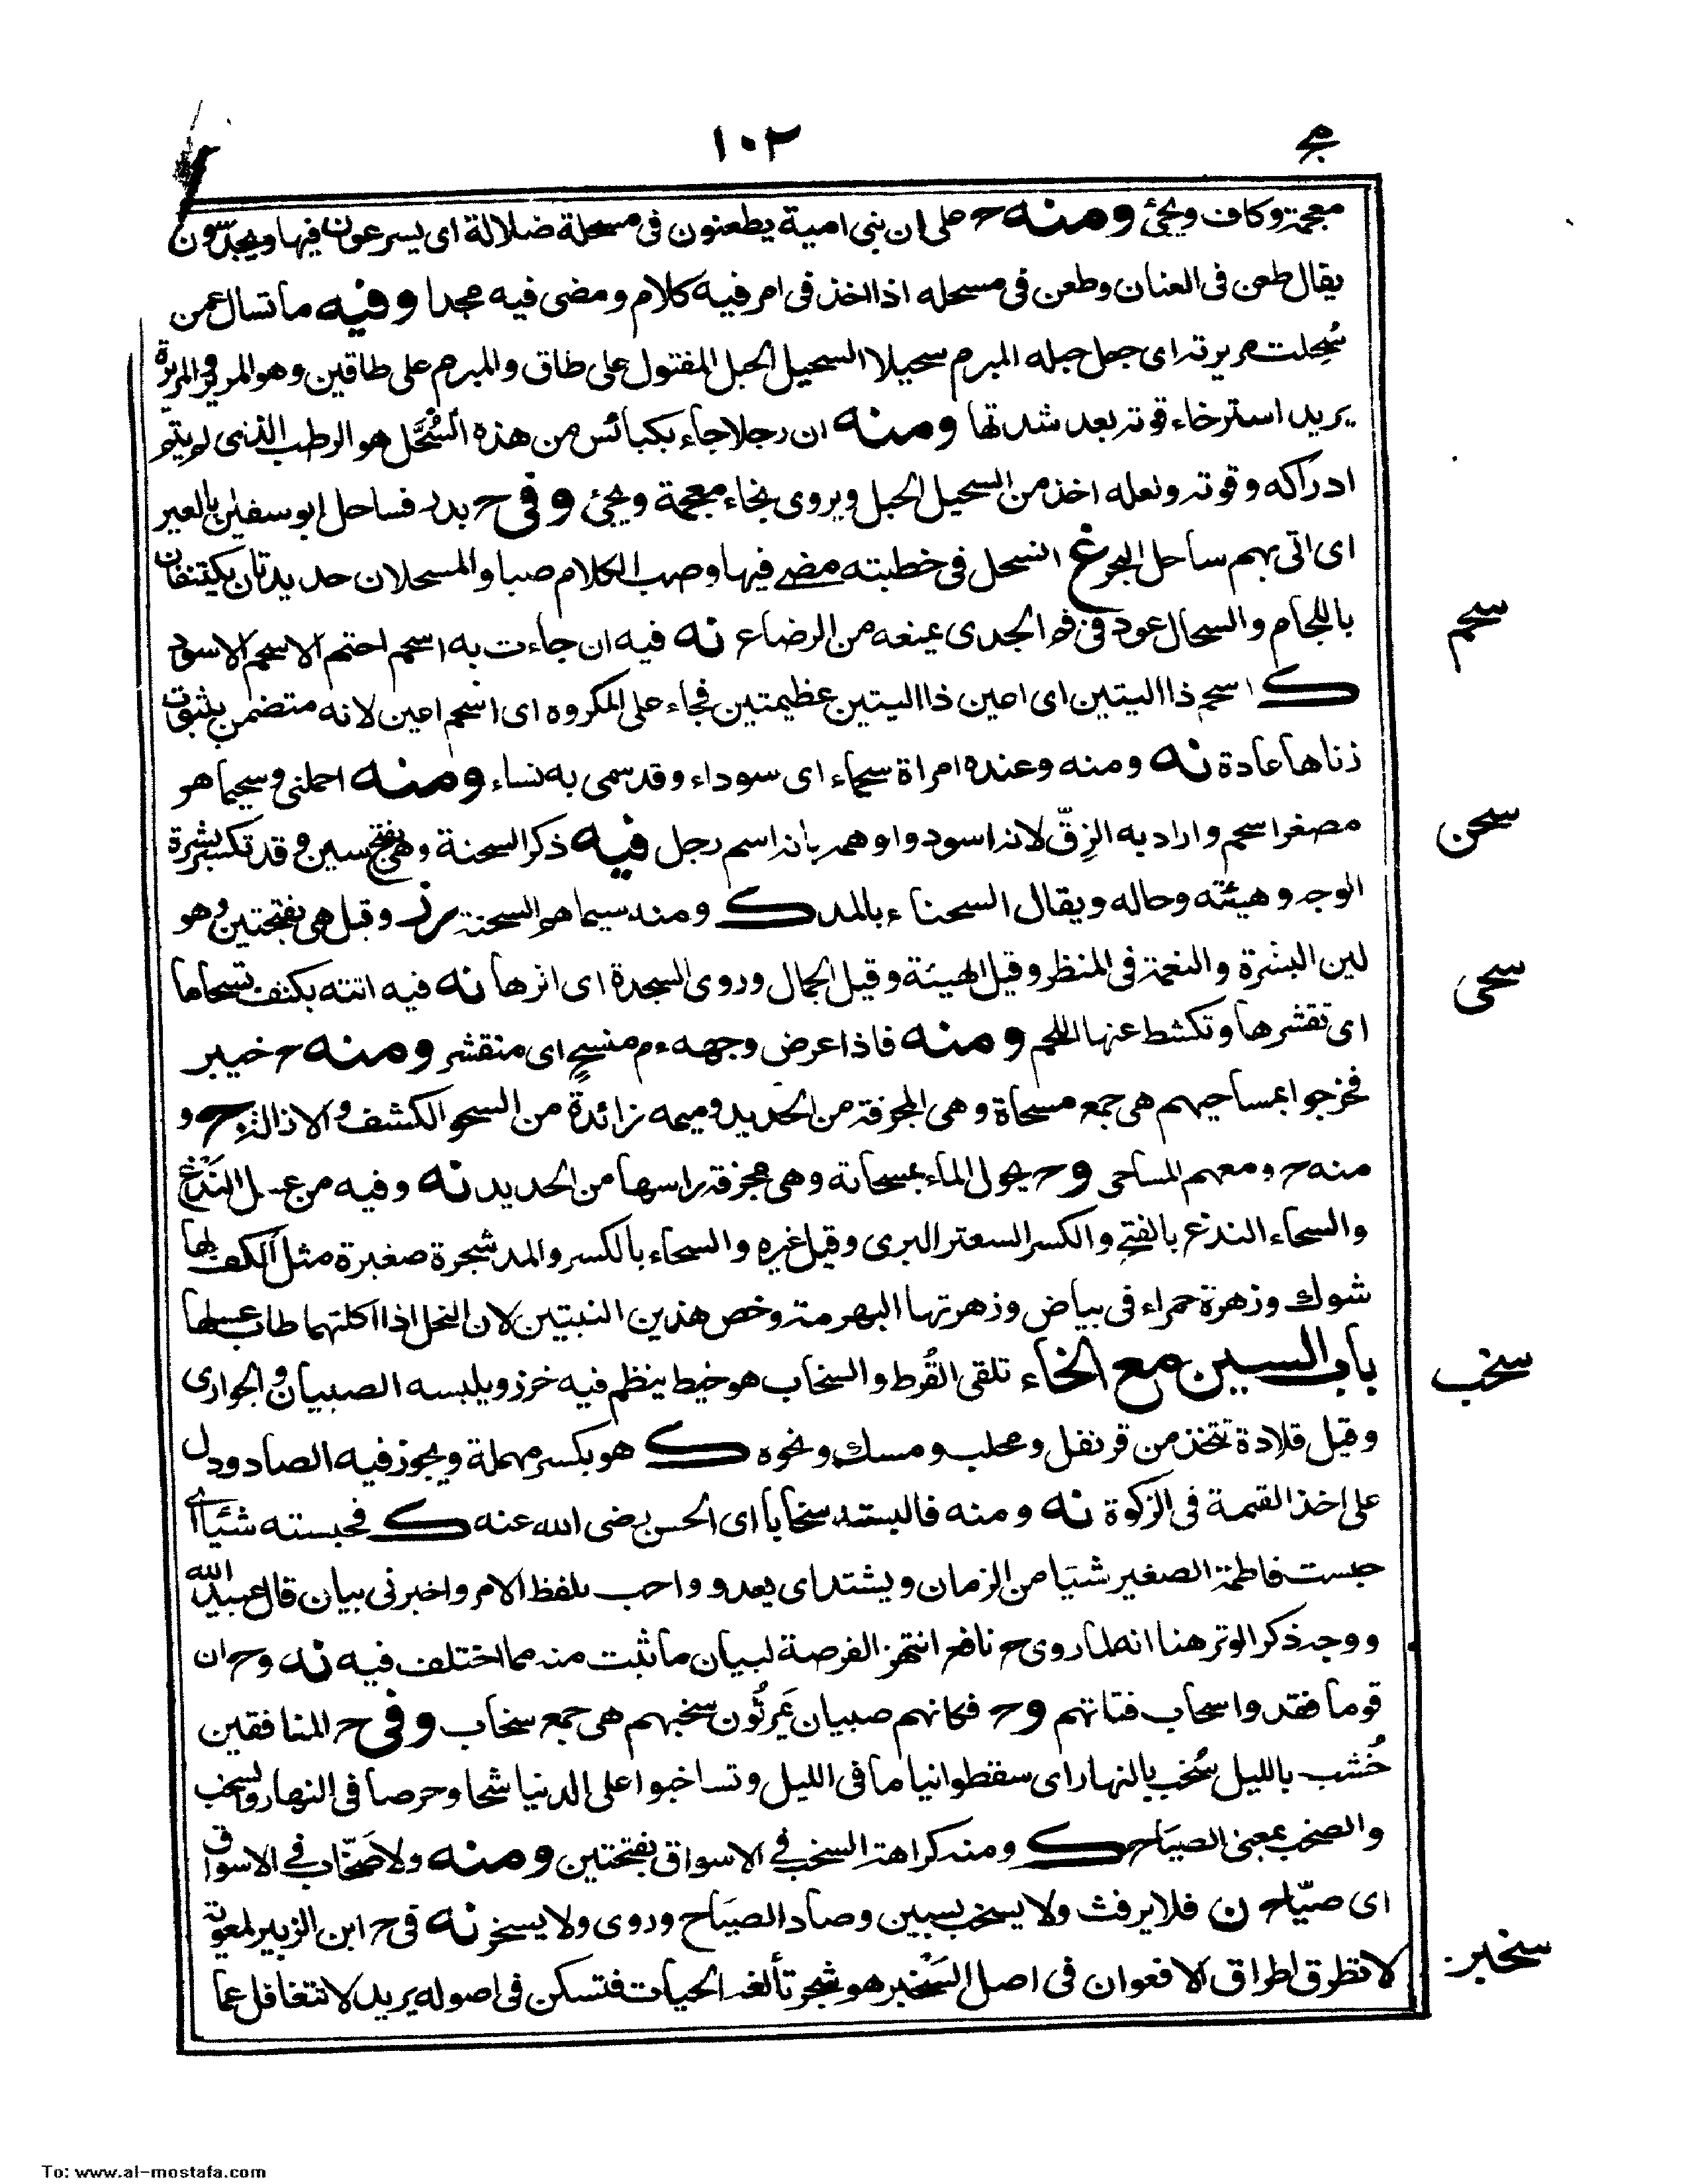 ١٠٢
معجمة وكاف ويجئ ومنه ح على ان بنى امية يطعنون فى مسحلة ضلالة اى يسرعون فيها ويجدون
يقال طعن فى العنان وطعن فى مسحله اذا اخذ فى امر فيه كلام ومضى فيه مجدا وفيه ما تسال عمن
سُحِلت مريرته اى جعل حبله المبرم سحيلا السحيل الحبل المفتول على طاق والمبرم على طاقين وهو المرير والمريرة
يريد استرخاء قوته بعد شدتها ومنه ان رجلا جاء بكبائس من هذه السُّحَّل هو الرطب الذى لم يتم
ادراكه وقوته ولعله اخذ من السحيل الحبل ويروى بخاء معجمة ويجئ وفى ح بدر فساحل ابو سفين بالعير
اى اتى بهم ساحل البحر غ انسحل فى خطبته مضے فيها وصب الكلام صبا والمسحلان حديدتان يكتنفان
باللجام والسحال عود فى فم الجدى يمنعه من الرضاع نه فيه ان جاءت به اسحم احتم الاسحم الاسود
سحم
ك اسحم ذا اليتين اى امين ذا اليتين عظيمتين فجاء على المكروه اى اسحم امين لانه متضمن بثبوت
زناها عادة نه ومنه وعنده امراة سحماء اى سوداء وقد سمى به نساء ومنه احملنى وسحيما هو
مصغر اسحم واراد به الزِقّ لانه اسود واوهمه بانه اسم رجل فيه ذكر السحنة وهى بفتح سين وقد تكسر بشرة
سحن
الوجه وهيئته وحاله ويقال السحناء بالمد ك ومنه سيماهم السحنة رز وقيل هى بفتحتين وهو
لين البشرة والنعمة فى المنظر وقيل الهيئة وقيل الجمال وروى السجدة اى اثرها نه فيه اتته بكتف تسحاها
سحى
اى تقشرها وتكشط عنها اللحم ومنه فاذا عرض وجهه م منسحٍ اى منقشر ومنه ح خيبر
فخرجوا بمساحيهم هى جمع مسحاة وهى المجرفة من الحديد وميمه زائدة من السحو الكشف والازالة و
منه ح ومعهم المساحى وح يحول الماء بمسحاته وهى مجرفة راسها من الحديد نه وفيه من عسل النَدْغ
والسحاء الندغ بالفتح والكسر السعتر البرى وقيل غيره والسحاء بالكسر والمد شجرة صغيرة مثل الكف لها
شوك وزهرة حمراء فى بياض وزهرتها البهرمة وخص هذين النبتين لان النحل اذا اكلتهما طاب عسلها
باب السين مع الخاء تلقى القُرط والسخاب هو خيط ينظم فيه خرز ويلبسه الصبيان والجوارى
سخب
وقيل قلادة تتخذ من قرنفل ومحلب ومسك ونحوه ك هو بكسر مهملة ويجوز فيه الصاد ودل
على اخذ القيمة فى الزكوة نه ومنه فالبسته سخابا اى الحسن رضى الله عنه ك فحبسته شيئا اے
حبست فاطمة الصغير شيئا من الزمان ويشتد اى يعدو واحب بلفظ الامر واخبرنى بيان قال عبيد الله
ووجه ذكر الوتر هنا انه لما روى ح نافع انتهز الفرصة لبيان ما ثبت منه مما اختلف فيه نه وح ان
قوما فقدوا سخاب فتاتهم وح فكانهم صبيان يَمرثُون سخبهم هى جمع سخاب وفى ح المنافقين
خُشب بالليل سُخب بالنهار اى سقطوا نياما فى الليل وتساخبوا على الدنيا شحا وحرصا فى النهار والسخب
والصخب بمعنى الصياح ك ومنه كراهة السخب فے الاسواق بفتحتين ومنه ولا صَخّاب فے الاسواق
اى صيّاح ن فلا يرفث ولا يسخب بسين وصاد الصيَاح وروى ولا يسخر نه فى ح ابن الزبير لمعوية
لا تطرق اطراق الافعوان فى اصل السَخْبر هو شجر تألفه الحيات فتسكن فى اصوله يريد لا تتغافل عما
سخبر
To: www.al-mostafa.com